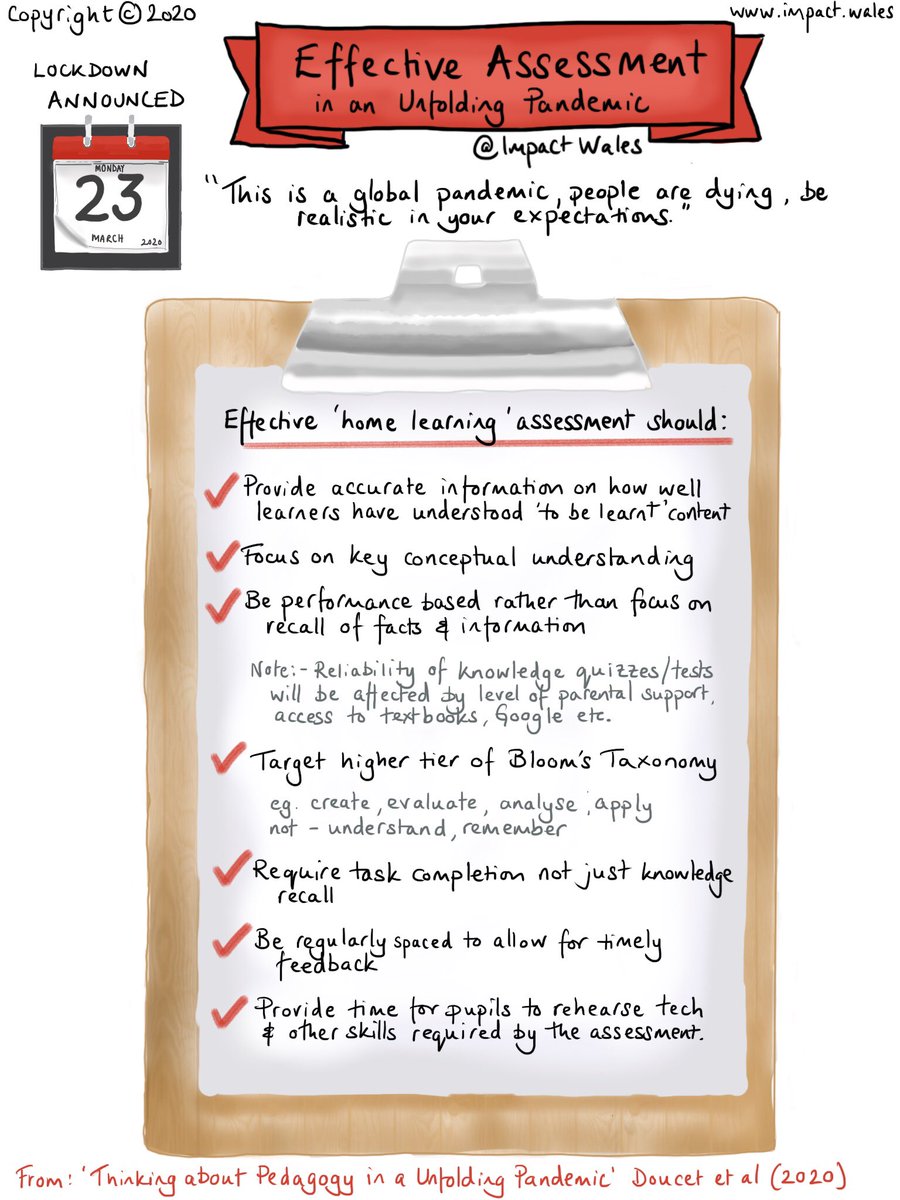 Copyright © 2020
www.impact.wales
LOCKDOWN
ANNOUNCED
MONDAY
23
MARCH 2020
Effective Assessment
in an Unfolding Pandemic
@Impact Wales
"This is a global pandemic, people are dying, be
realistic in your expectations."
Effective 'home learning' assessment should:
Provide accurate information on how well
learners have understood 'to be learnt' content
Focus on key conceptual understanding
Be performance based rather than focus on
recall of facts & information
Note:- Reliability of knowledge quizzes/tests
will be affected by level of parental support,
access to textbooks, Google etc.
Target higher tier of Bloom's Taxonomy
eg. create, evaluate, analyse, apply
not - understand, remember
Require task completion not just knowledge
recall
Be regularly spaced to allow for timely
feedback
Provide time for pupils to rehearse tech
& other skills required by the assessment.
From: 'Thinking about Pedagogy in a Unfolding Pandemic' Doucet et al (2020)